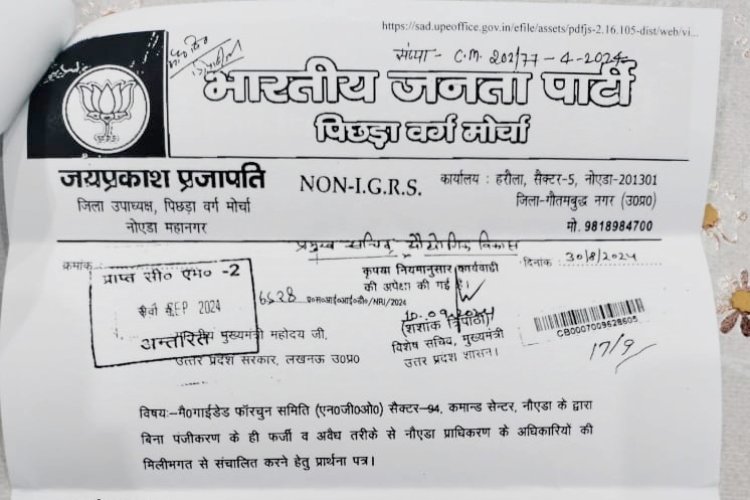 https://sad.upeoffice.gov.in/efile/assets/pdfjs-2.16.105-dist/web/vi...
संख्या - C.M. 202/77-4-2024
भारतीय जनता पार्टी
पिछड़ा वर्ग मोर्चा
जयप्रकाश प्रजापति
जिला उपाध्यक्ष, पिछड़ा वर्ग मोर्चा
नोएडा महानगर
NON-I.G.R.S.
कार्यालय : हरौला, सैक्टर-5, नोएडा-201301
जिला-गौतमबुद्ध नगर (उ०प्र०)
मो. 9818984700
प्रमुख सचिव, औद्योगिक विकास
क्रमांक
दिनांक 30/8/2024
प्राप्त सी० एम० -2
SEP 2024
अन्तरित
6628
/NRI/2024
कृपया नियमानुसार कार्यवाही
की अपेक्षा की गई है।
10.09.2024
(शशांक त्रिपाठी)
विशेष सचिव, मुख्यमंत्री
उत्तर प्रदेश शासन।
CB0007009628605
17/9
मुख्यमंत्री महोदय जी,
उत्तर प्रदेश सरकार, लखनऊ उ०प्र०
विषयः-मै०गाईडेड फॉरचुन समिति (एन०जी०ओ०) सैक्टर-94, कमान्ड सेन्टर, नौएडा के द्वारा
बिना पंजीकरण के ही फर्जी व अवैध तरीके से नौएडा प्राधिकरण के अधिकारियों की
मिलीभगत से संचालित करने हेतु प्रार्थना पत्र।